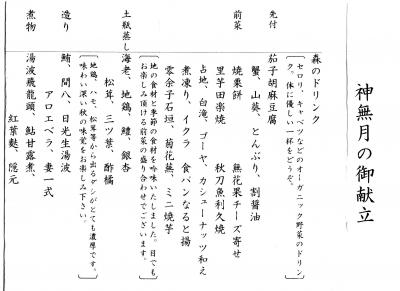 神無月の御献立
森のドリンク
セロリ、キャベツなどのオーガニック野菜のドリン
ク。体に優しい一杯をどうぞ。
先付
茄子胡麻豆腐
蟹、山葵、とんぶり、割醤油
前菜
焼栗餅 無花果チーズ寄せ
里芋田楽焼 秋刀魚利久焼
占地、白滝、ゴーヤ、カシューナッツ和え
煮凍り、イクラ 食パンなると揚
零余子石垣、菊花蕪、ミニ焼芋
地の食材と季節の食材を吟味いたしました。目でも
お楽しみ頂ける前菜の盛り合わせでございます。
土瓶蒸し
海老、地鶏、鱧、銀杏
松茸、三つ葉、酢橘
地鶏、ハモ、松茸等から出るダシがとても濃厚です。
味わい深い秋の味覚をお楽しみ下さい。
造り
鮪、間八、日光生湯波
アロエベラ、妻一式
煮物
湯波飛龍頭、鮎甘露煮、
紅葉麩、隠元